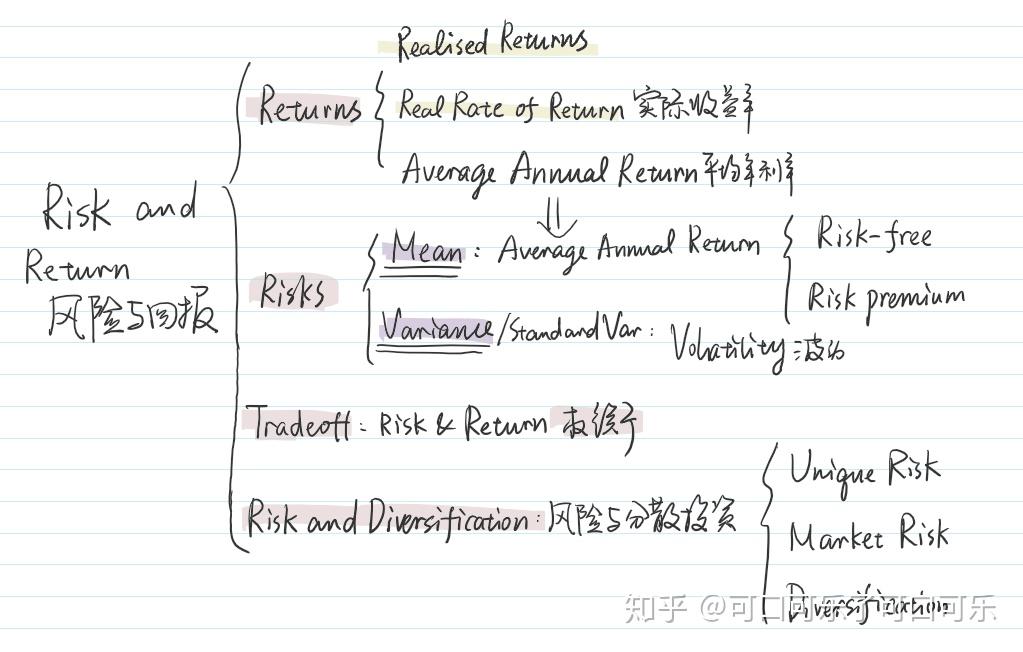 Realised Returns
Returns
Real Rate of Return 实际收益率
Average Annual Return 平均年利率
Risk and
Return
风险与回报
Risks
Mean : Average Annual Return
Risk-free
Risk premium
Variance/Standard Var : Volatility 波动
Tradeoff : Risk & Return 权衡
Risk and Diversification : 风险与分散投资
Unique Risk
Market Risk
Diversification
知乎 @可口可乐了可口可乐